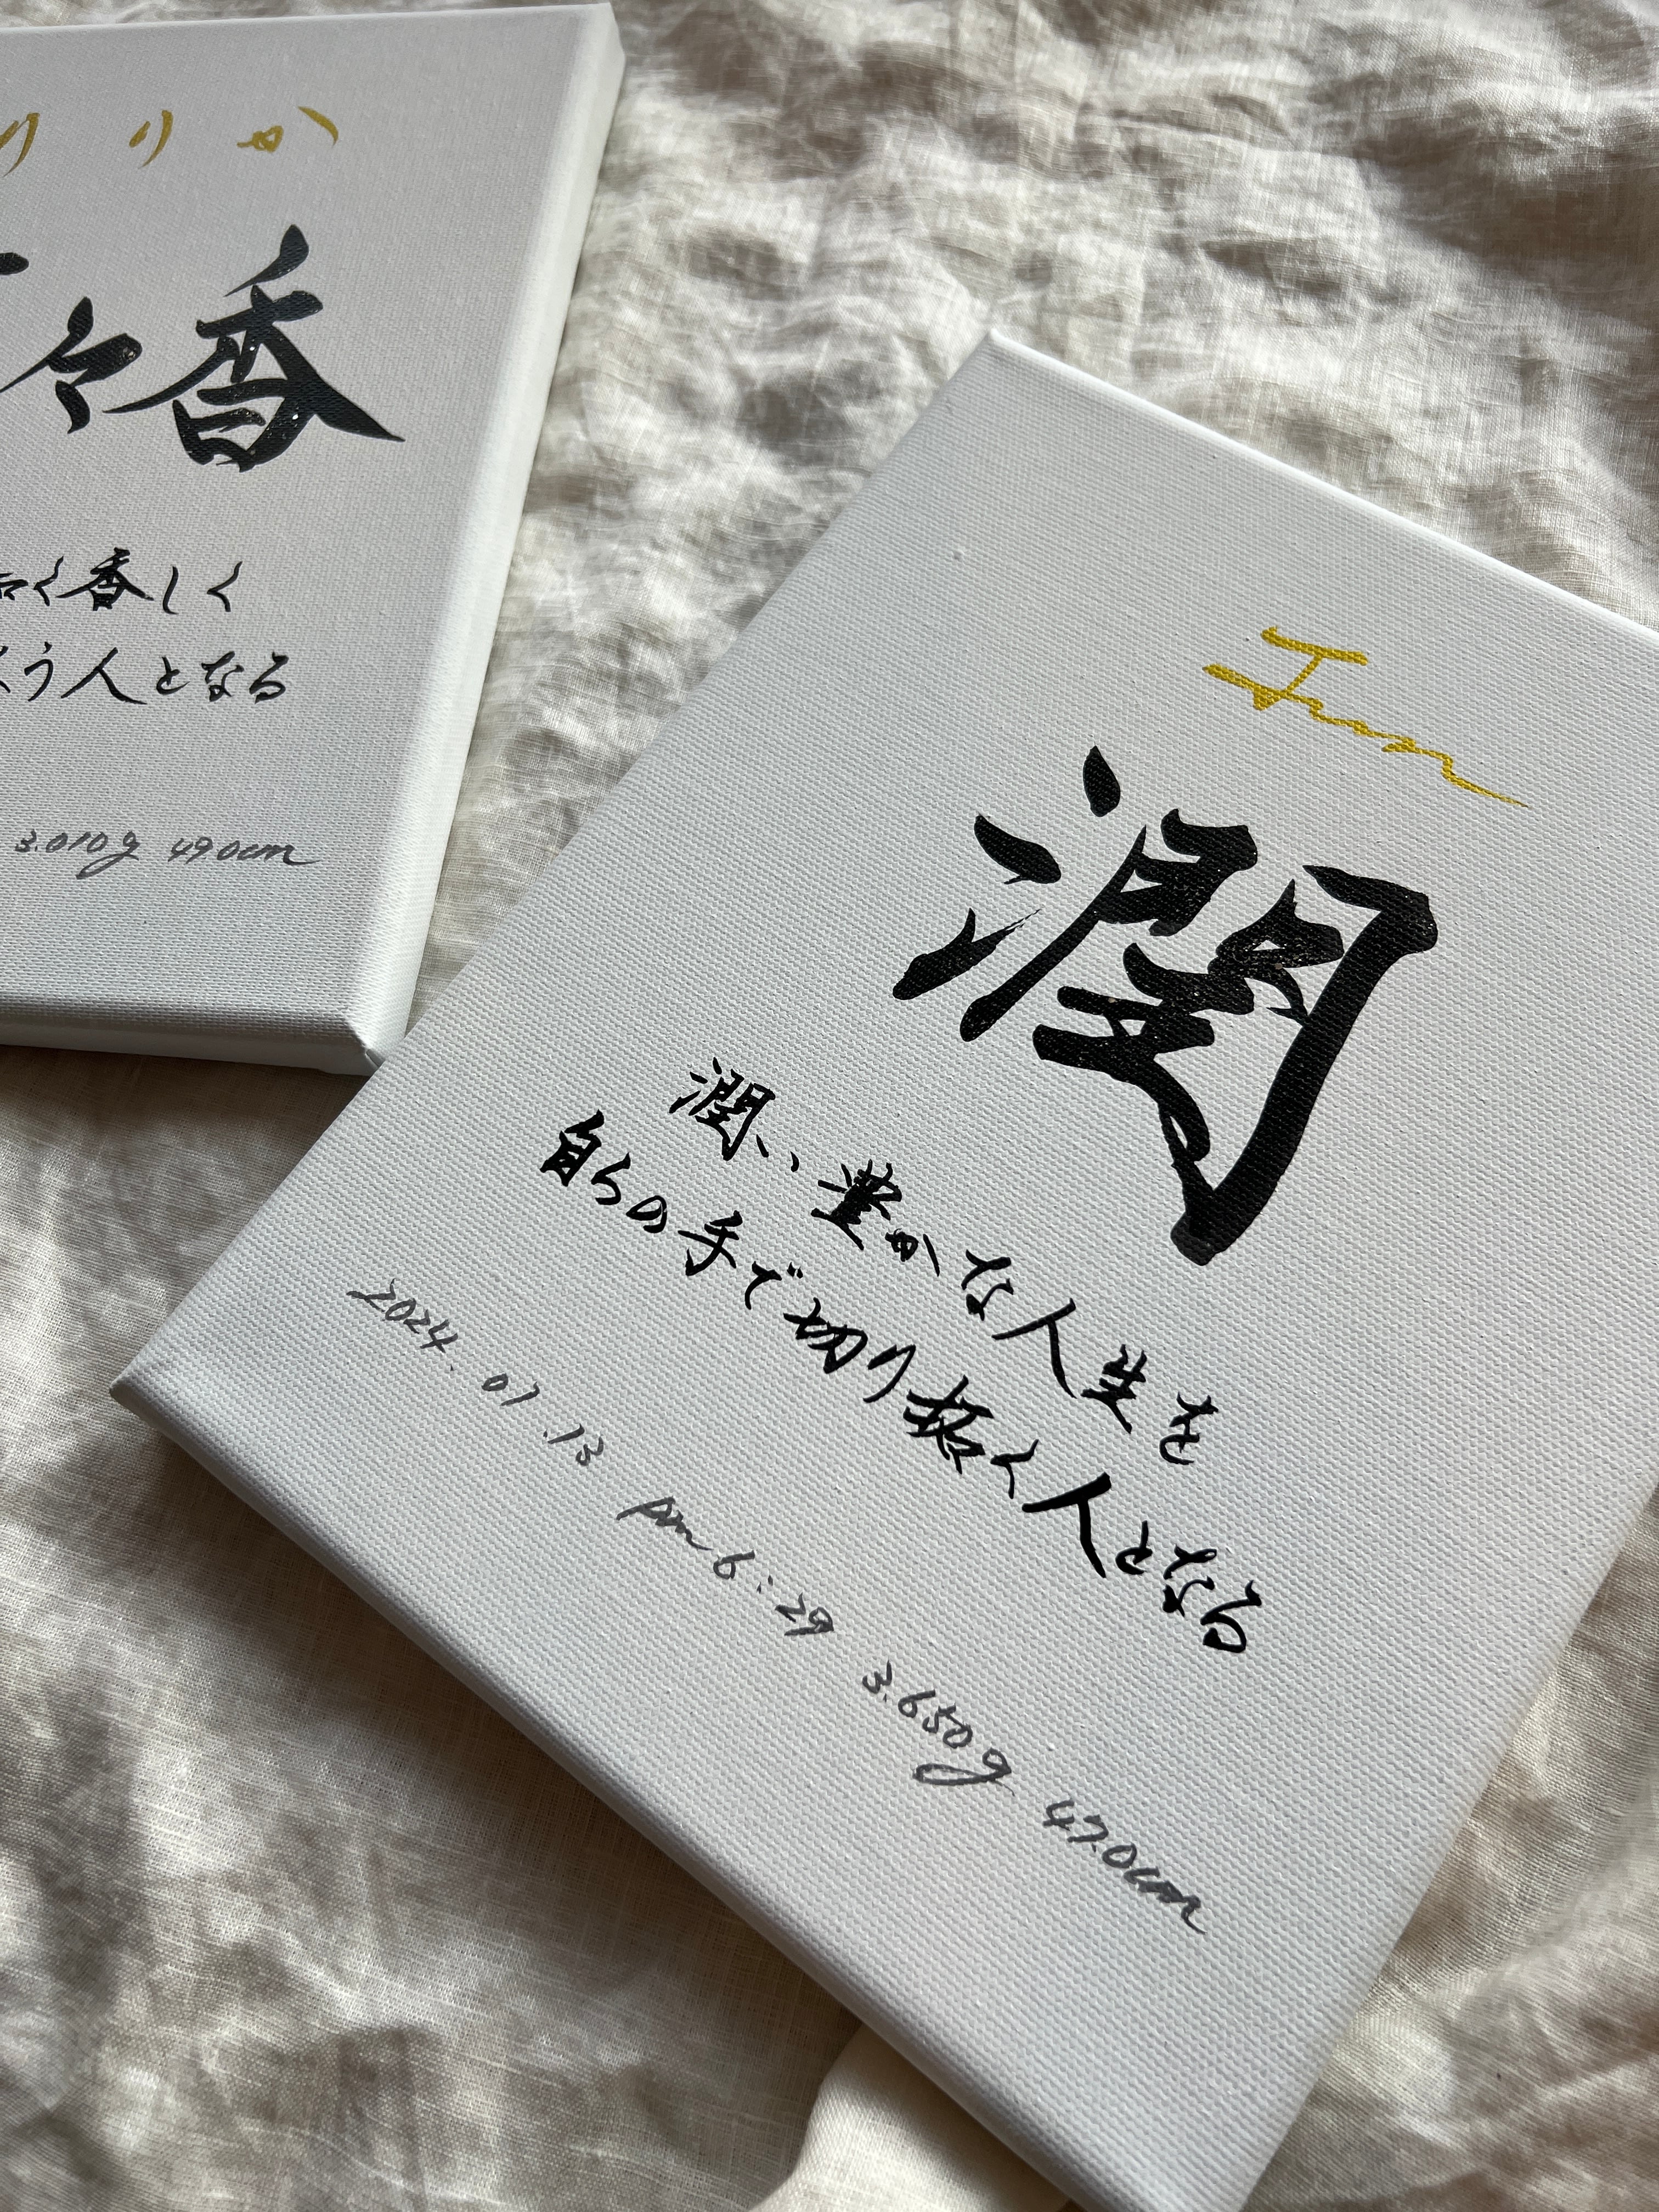 りりか
々香
く香しく
う人となる
3.010g 49.0cm
Jun
潤
潤い豊かな人生を
自らの手で切り拓く人となる
2024.07.13 pm 6:29 3.650g 47.0cm